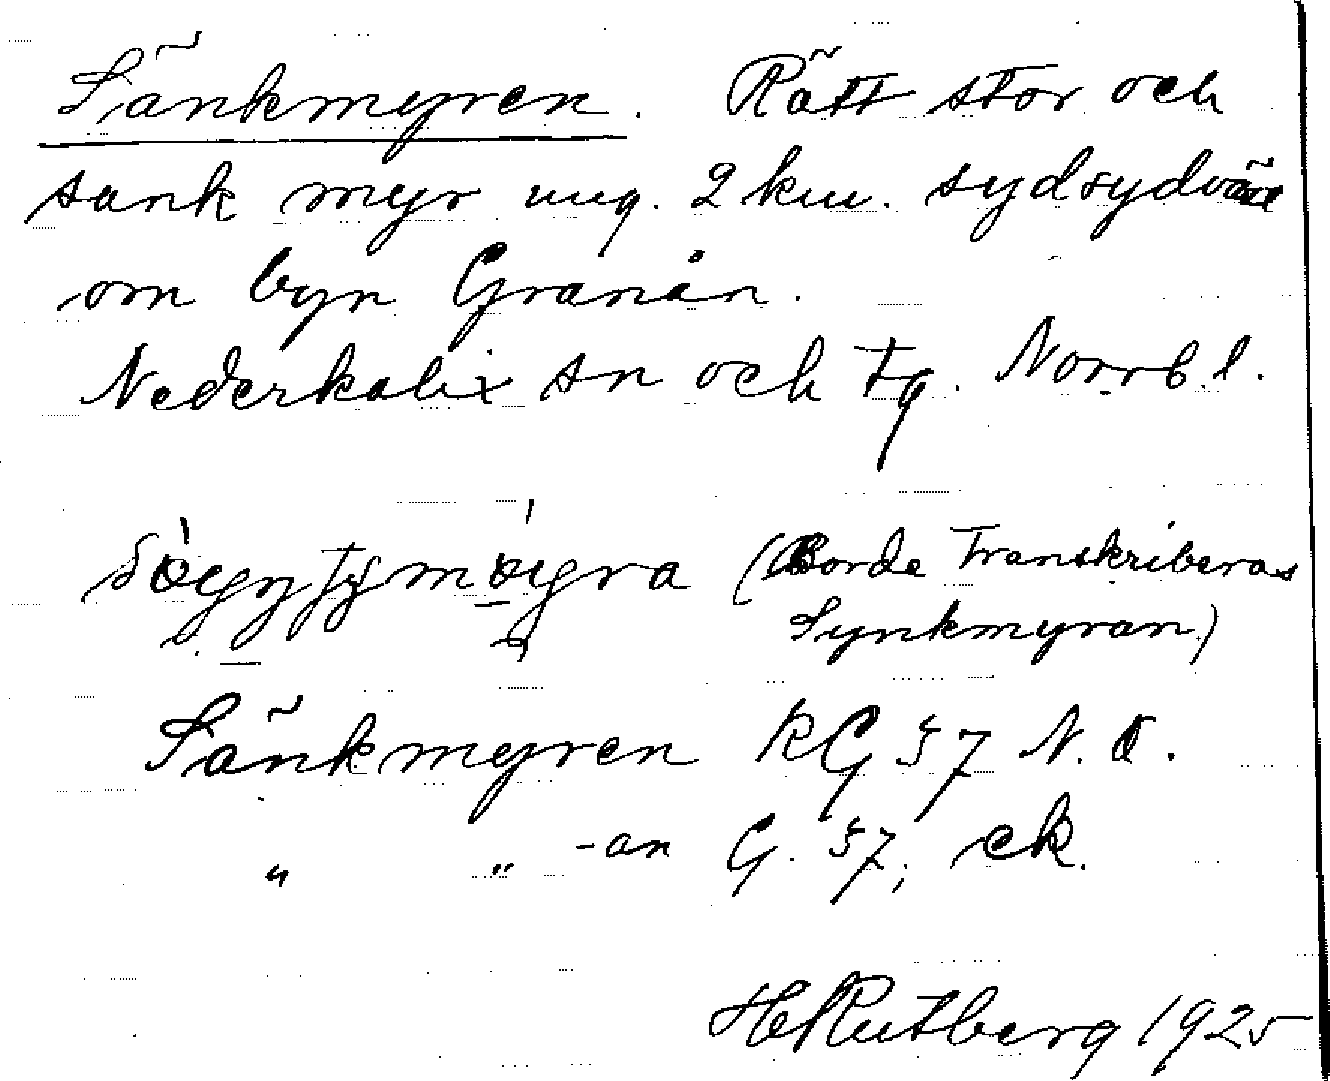 Sänkmyren. Rätt stor och
sank myr ung. 2 km. sydsydväst
om byn Granån.
Nederkalix sn och tg. Norrb. l.
(Borde transkriberas
Synkmyran)
Sänkmyren RG 57 N. O.
„ „ -an G. 57, ek.
H Rutberg 1925